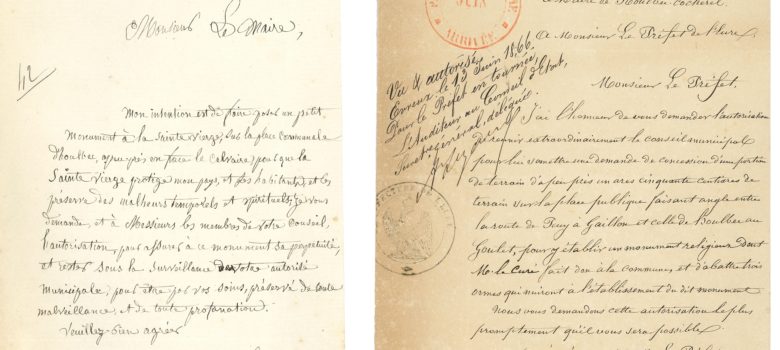 Monsieur Le Maire,
42
Mon intention est de faire poser un petit
monument à la Sainte Vierge, sur la place communale
d'houlbec, auprès, en face le calvaire pour que la
Sainte Vierge protège mon pays, et ses habitants, et les
préserve des malheurs temporels et spirituels, je vous
demande, et à Messieurs les membres de votre conseil,
l'autorisation, pour assurer à ce monument sa perpétuité,
et rester sous la surveillance de votre autorité
municipale, pour être par vos soins, préservé de toute
malveillance, et de toute profanation.
Veuillez bien agréer
ARRIVÉE
JUIN
Le Maire de Houlbec Cocherel
A Monsieur Le Préfet de l'Eure
Vu & autorisé
Evreux le 12 Juin 1866
Pour le Préfet en tournée,
L'Auditeur au Conseil d'Etat,
Secrét. général, délégué.
Monsieur Le Préfet.
J'ai l'honneur de vous demander l'autorisation
de réunir extraordinairement le conseil municipal
pour lui soumettre une demande de concession d'une portion
de terrain d'à peu près un ares cinquante centiares de
terrain sur la place publique faisant angle entre
la route de Pacy à Gaillon et celle de Houlbec au
Goulet, pour y établir un monument religieux dont
Mr le Curé fait don à la commune, et d'abattre trois
ormes qui nuiront à l'établissement du dit monument
Nous vous demandons cette autorisation le plus
promptement qu'il vous sera possible.